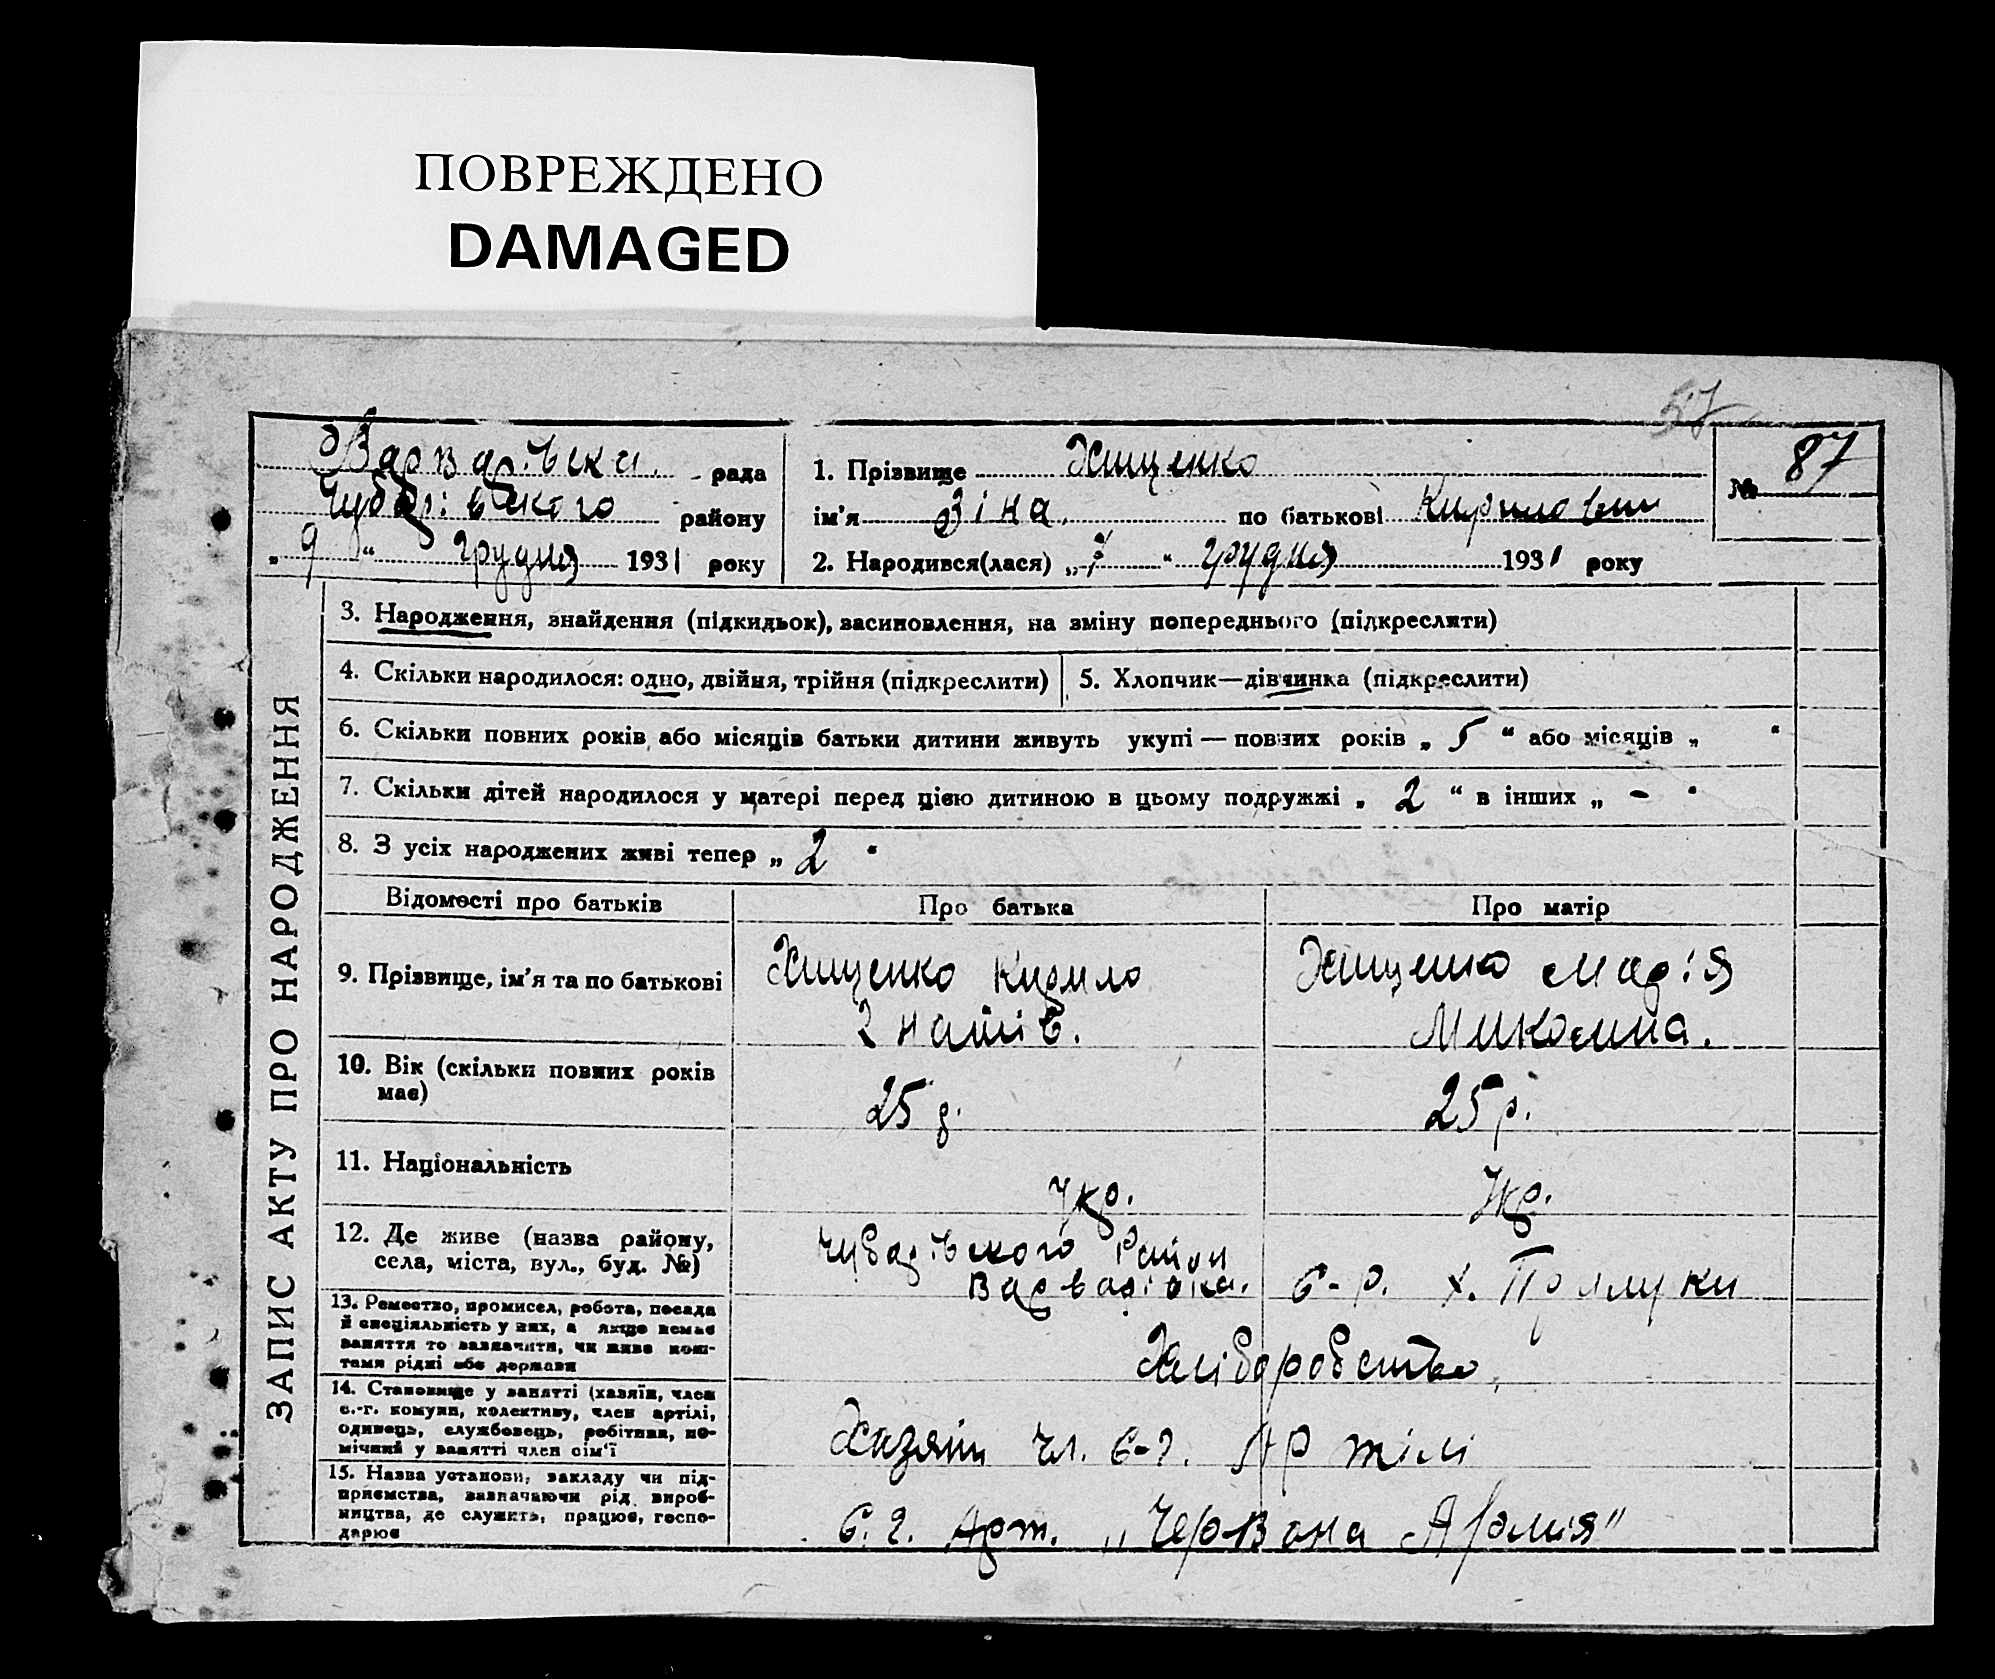 ПОВРЕЖДЕНО
DAMAGED
57
Варварівська рада
Чубарівського району
„ 9 “ грудня 1931 року
1. Прізвище Хищенко
ім'я Зіна по батькові Кирилови
2. Народився(лася) „ 7 “ грудня 1931 року
№ 87
ЗАПИС АКТУ ПРО НАРОДЖЕННЯ
3. Народження, знайдення (підкидьок), засиновлення, на зміну попереднього (підкреслити)
4. Скільки народилося: одно, двійня, трійня (підкреслити)
5. Хлопчик—дівчинка (підкреслити)
6. Скільки повних років або місяців батьки дитини живуть укупі — повних років „ 5 “ або місяців „ “
7. Скільки дітей народилося у матері перед цією дитиною в цьому подружжі „ 2 “ в інших „ - “
8. З усіх народжених живі тепер „ 2 “
Відомості про батьків
Про батька
Про матір
9. Прізвище, ім'я та по батькові
Хищенко Кирило
Гнатів.
Хищенко Марія
Миколина.
10. Вік (скільки повних років
має)
25 р.
25 р.
11. Національність
Укр.
Укр.
12. Де живе (назва району,
села, міста, вул., буд. №)
Чубарівського Район
Варварівка.
С-р. х. Прилуки
13. Ремество, промисел, робота, посада
й спеціяльність у них, а якщо немає
заняття то зазначити, чи живе кош-
тами рідні або держави
Хліборобство,
14. Становище у занятті (хазяїн, член
с.-г. комуни, колективу, член артілі,
одинець, службовець, робітник, по-
мічний у занятті член сім'ї
Хазяїн чл. с-г. Артілі
15. Назва установи, закладу чи під-
приємства, зазначаючи рід вироб-
ництва, де служить, працює, госпо-
дарює
с. г. Арт. „Червона Армія"